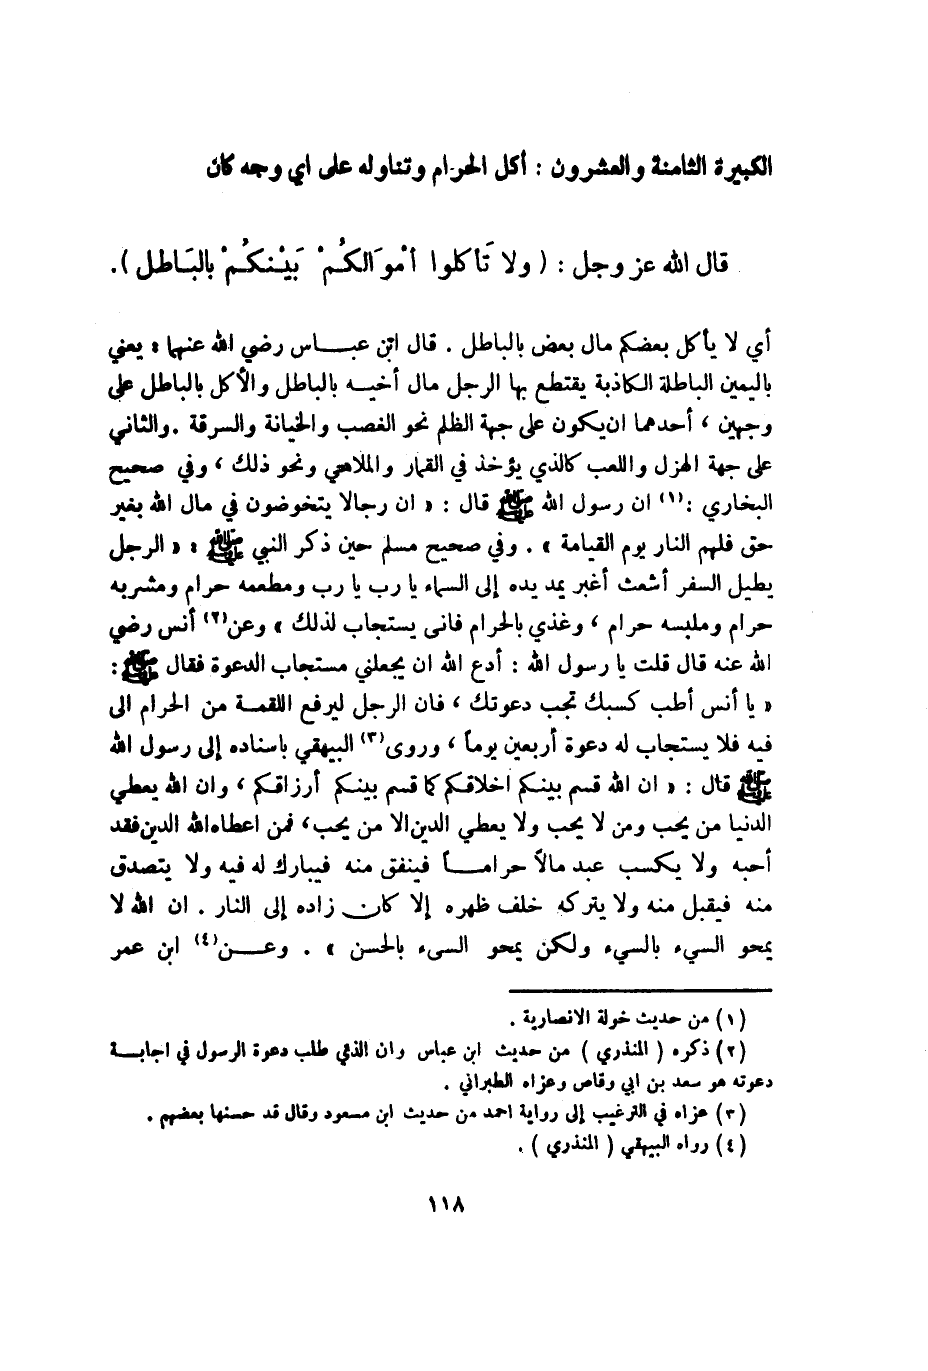 الكبيرة الثامنة والعشرون : أكل الحرام وتناوله على اي وجه كان
قال الله عز وجل : ( ولا تَأكلوا أمْوَالكُمْ بَيْنكُمْ بالبَاطل ).
أي لا يأكل بعضكم مال بعض بالباطل . قال ابن عبـــاس رضي الله عنهما : يعني
باليمين الباطلة الكاذبة يقتطع بها الرجل مال أخيـه بالباطل والأكل بالباطل على
وجهين ، أحدهما ان يكون على جهة الظلم نحو الغصب والخيانة والسرقة . والثاني
على جهة الهزل واللعب كالذي يؤخذ في القمار والملاهي ونحو ذلك ، وفي صحيح
البخاري :(١) ان رسول الله ﷺ قال : « ان رجالا يتخوضون في مال الله بغير
حق فلهم النار يوم القيامة » . وفي صحيح مسلم حين ذكر النبي ﷺ : « الرجل
يطيل السفر أشعث أغبر يمد يده إلى السماء يا رب يا رب ومطعمه حرام ومشربه
حرام وملبسه حرام ، وغذي بالحرام فانى يستجاب لذلك » وعن(٢) أنس رضي
الله عنه قال قلت يا رسول الله : أدع الله ان يجعلني مستجاب الدعوة فقال ﷺ :
« يا أنس أطب كسبك تجب دعوتك ، فان الرجل ليرفع اللقمـة من الحرام الى
فيه فلا يستجاب له دعوة أربعين يوماً ، وروى(٣) البيهقي باسناده إلى رسول الله
ﷺ قال : « ان الله قسم بينكم اخلاقكم كما قسم بينكم أرزاقكم ، وان الله يعطي
الدنيا من يحب ومن لا يحب ولا يعطي الدين الا من يحب ، فمن اعطاه الله الدين فقد
أحبه ولا يكسب عبد مالاً حرامـــاً فينفق منه فيبارك له فيه ولا يتصدق
منه فيقبل منه ولا يتركه خلف ظهره إلا كان زاده إلى النار . ان الله لا
يمحو السيء بالسيء ولكن يمحو السيء بالحسن » . وعـــن(٤) ابن عمر
(١) من حديث خولة الانصارية .
(٢) ذكره ( المنذري ) من حديث ابن عباس وان الذي طلب دعوة الرسول في اجابـــة
دعوته هو سعد بن ابي وقاص وعزاه الطبراني .
(٣) عزاه في الترغيب إلى رواية احمد من حديث ابن مسعود وقال قد حسنها بعضهم .
(٤) رواه البيهقي ( المنذري ) .
١١٨